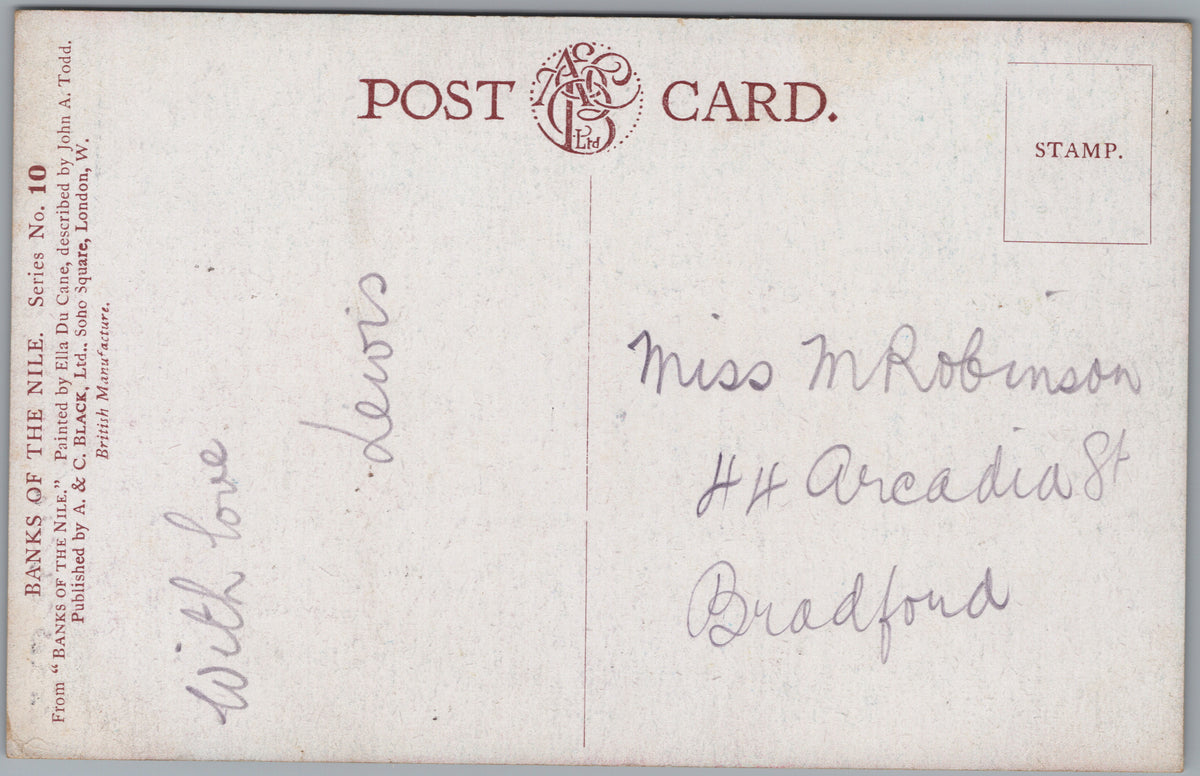 BANKS OF THE NILE. Series No. 10
From "BANKS OF THE NILE." Painted by Ella Du Cane, described by John A. Todd.
Published by A. & C. BLACK, Ltd., Soho Square, London, W.
British Manufacture.
POST CARD.
A & C B Ltd
STAMP.
With love
Lewis
Miss M Robinson
44 Arcadia St
Bradford